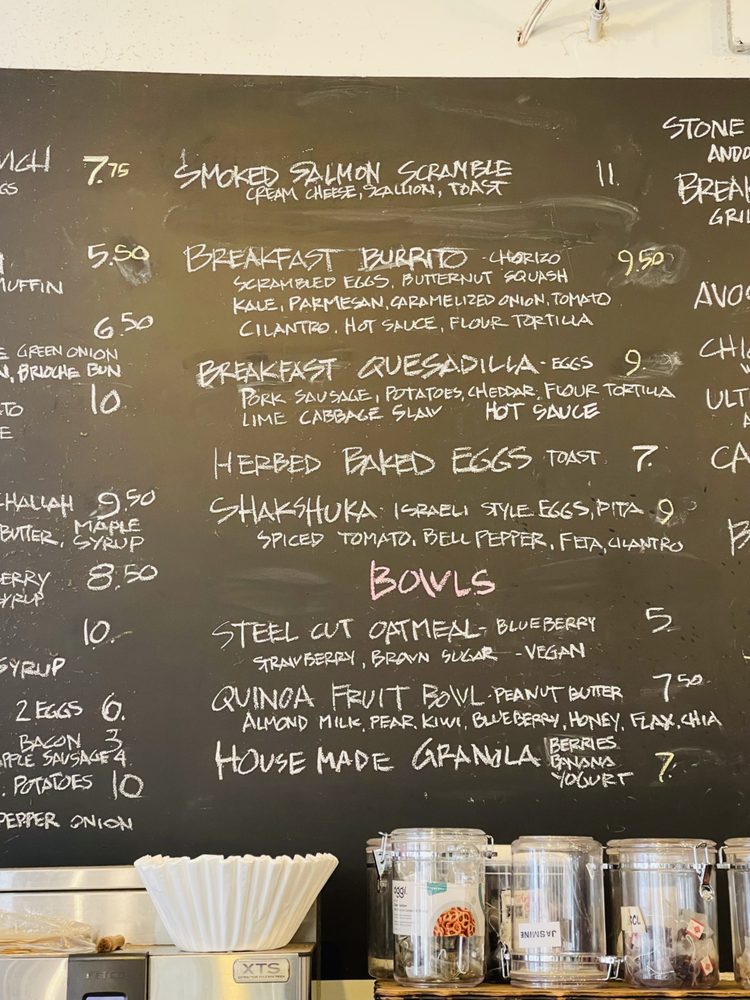 7.75
GS
5.50
MUFFIN
6.50
E GREEN ONION
N, BRIOCHE BUN
TO 10
E
CHALLAH 9.50
BUTTER, MAPLE
SYRUP
BERRY 8.50
SYRUP
10.
SYRUP
2 EGGS 6.
BACON 3
PPLE SAUSAGE 4
. POTATOES 10
PEPPER ONION
SMOKED SALMON SCRAMBLE 11.
CREAM CHEESE, SCALLION, TOAST
BREAKFAST BURRITO - CHORIZO 9.50
SCRAMBLED EGGS, BUTTERNUT SQUASH
KALE, PARMESAN, CARAMELIZED ONION, TOMATO
CILANTRO, HOT SAUCE, FLOUR TORTILLA
BREAKFAST QUESADILLA - EGGS 9
PORK SAUSAGE, POTATOES, CHEDDAR, FLOUR TORTILLA
LIME CABBAGE SLAW HOT SAUCE
HERBED BAKED EGGS TOAST 7.
SHAKSHUKA - ISRAELI STYLE EGGS, PITA 9
SPICED TOMATO, BELL PEPPER, FETA, CILANTRO
BOWLS
STEEL CUT OATMEAL - BLUEBERRY 5.
STRAWBERRY, BROWN SUGAR - VEGAN
QUINOA FRUIT BOWL - PEANUT BUTTER 7.50
ALMOND MILK, PEAR, KIWI, BLUEBERRY, HONEY, FLAX, CHIA
HOUSE MADE GRANOLA BERRIES
BANANA
YOGURT 7.
STONE
ANDO
BREAK
GRIL
AVO
CHI
ULT
CA
B
XTS
JASMINE